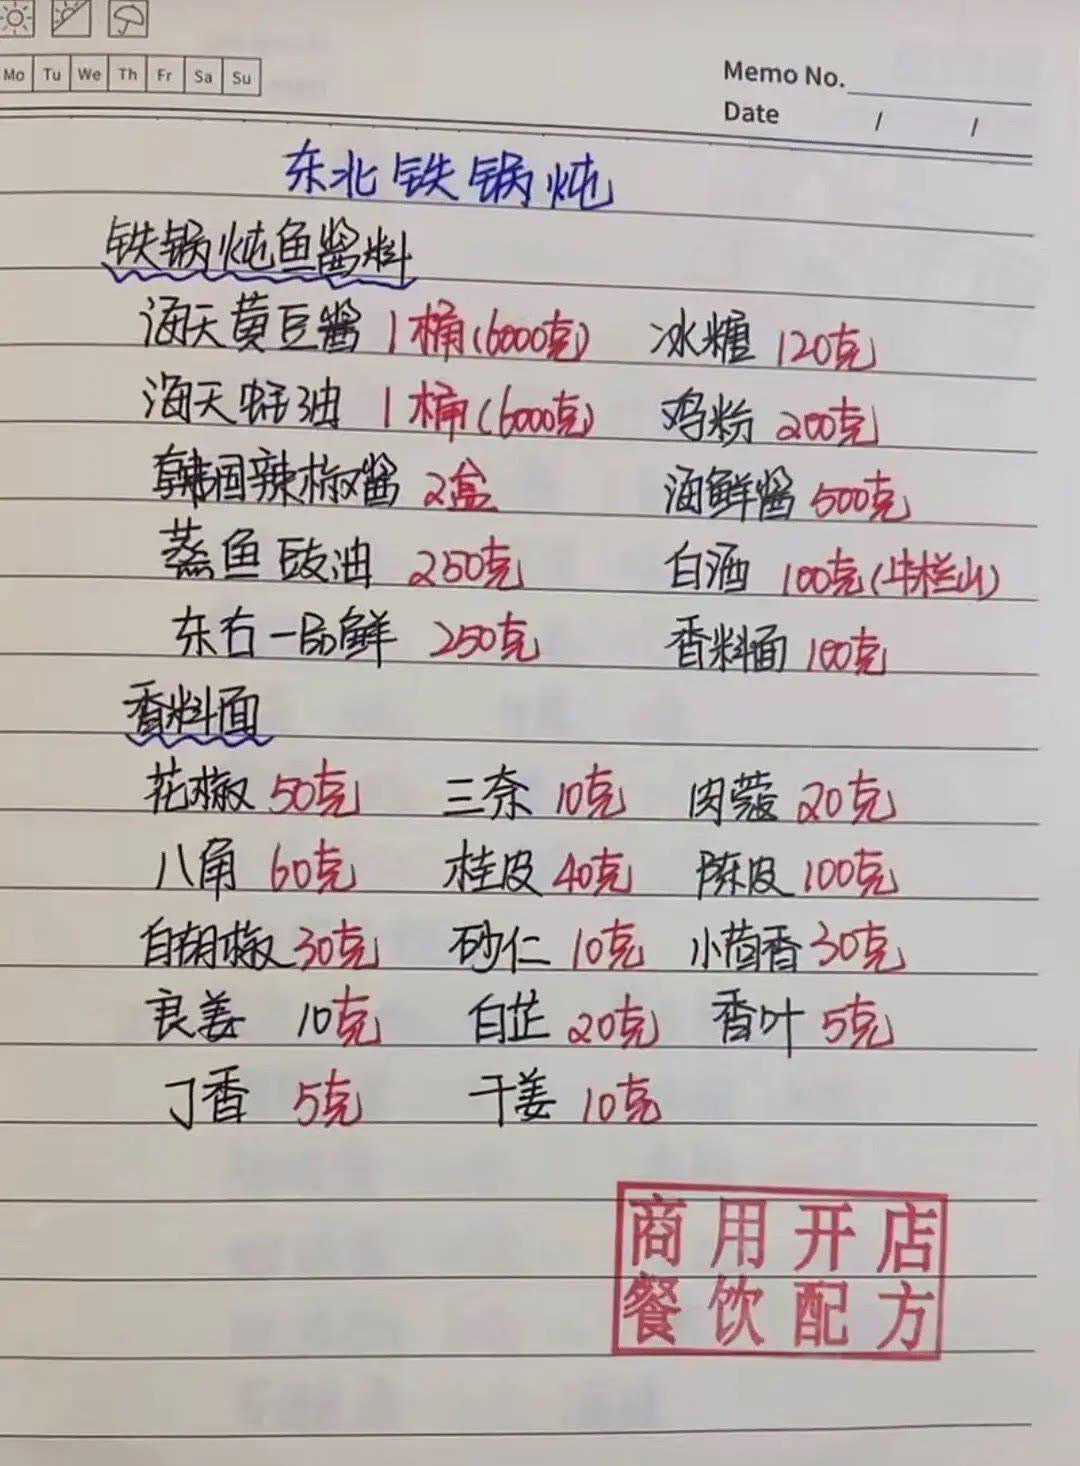 Mo Tu We Th Fr Sa Su
Memo No.
Date / /
东北铁锅炖
铁锅炖鱼酱料
海天黄豆酱 1桶(6000克) 冰糖 120克
海天蚝油 1桶(6000克) 鸡粉 200克
韩国辣椒酱 2盒 海鲜酱 500克
蒸鱼豉油 250克 白酒 100克(牛栏山)
东古一品鲜 250克 香料面 100克
香料面
花椒 50克 三奈 10克 肉蔻 20克
八角 60克 桂皮 40克 陈皮 100克
白胡椒 30克 砂仁 10克 小茴香 30克
良姜 10克 白芷 20克 香叶 5克
丁香 5克 干姜 10克
商用开店
餐饮配方